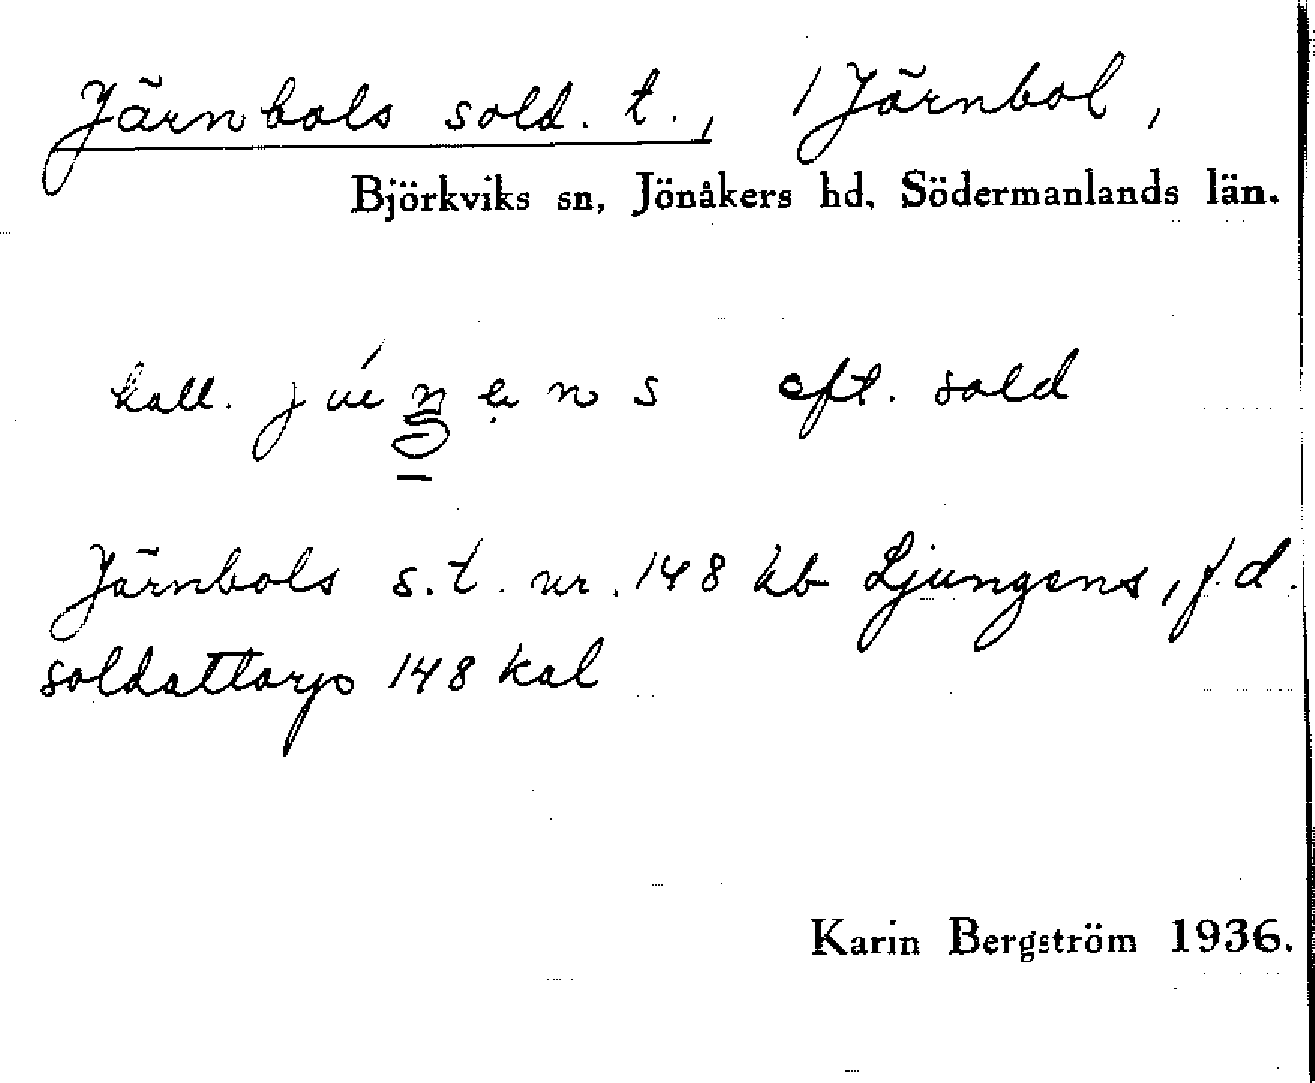 Järnbols sold. t., / Järnbol,
Björkviks sn, Jönåkers hd, Södermanlands län.
kall. eft. sold
Järnbols s.t. nr. 148 hb Ljungens, f.d.
soldattorp 148 kal
Karin Bergström 1936.